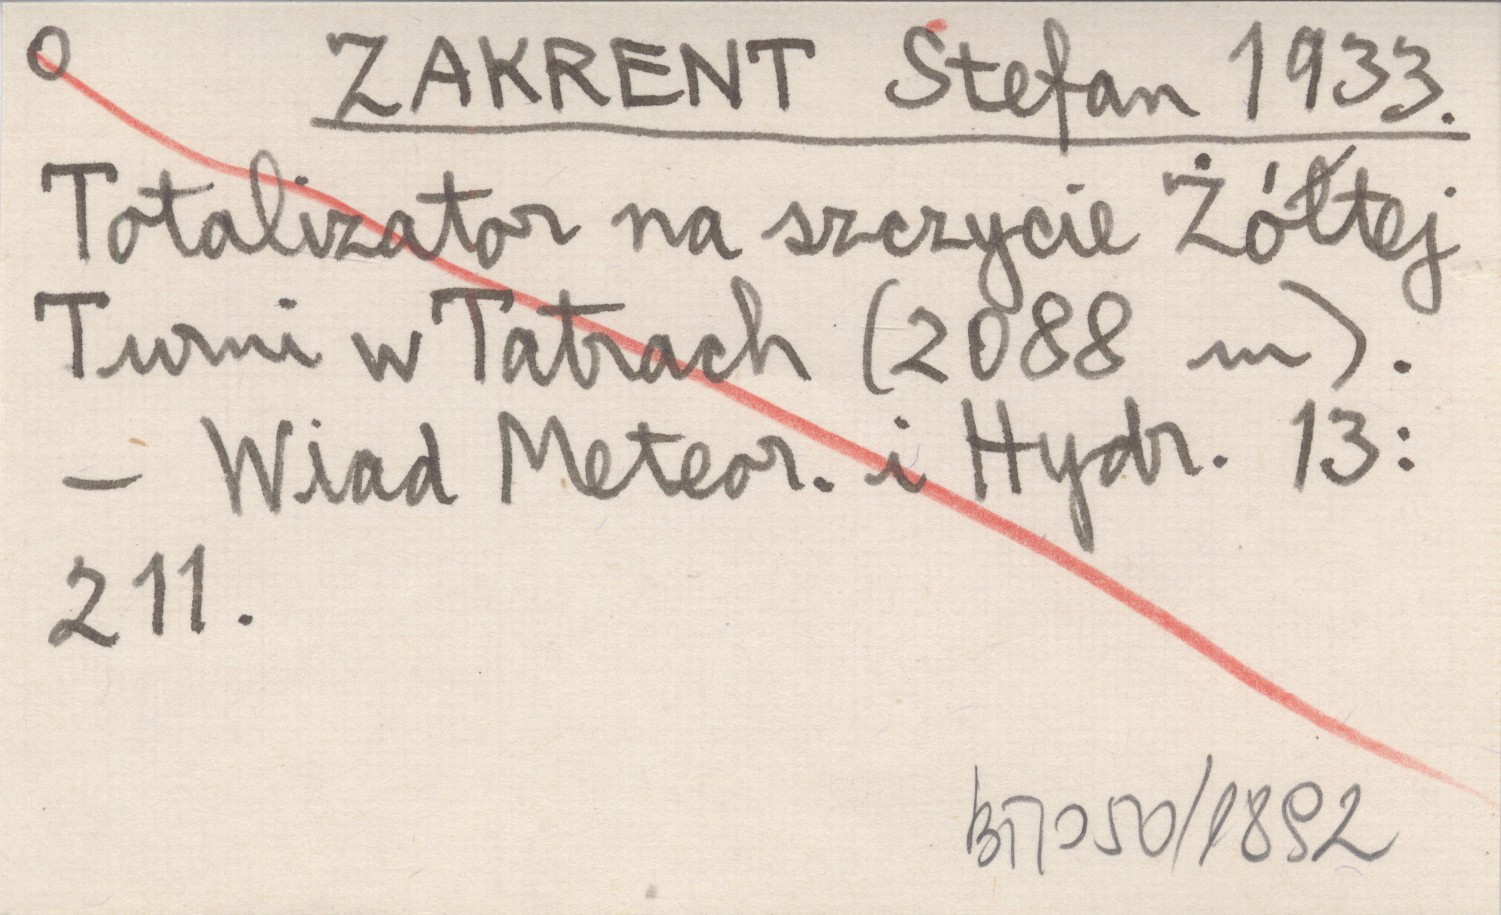 O ZAKRENT Stefan 1933.
Totalizator na szczycie Żółtej
Turni w Tatrach (2088 m).
— Wiad Meteor. i Hydr. 13:
211.